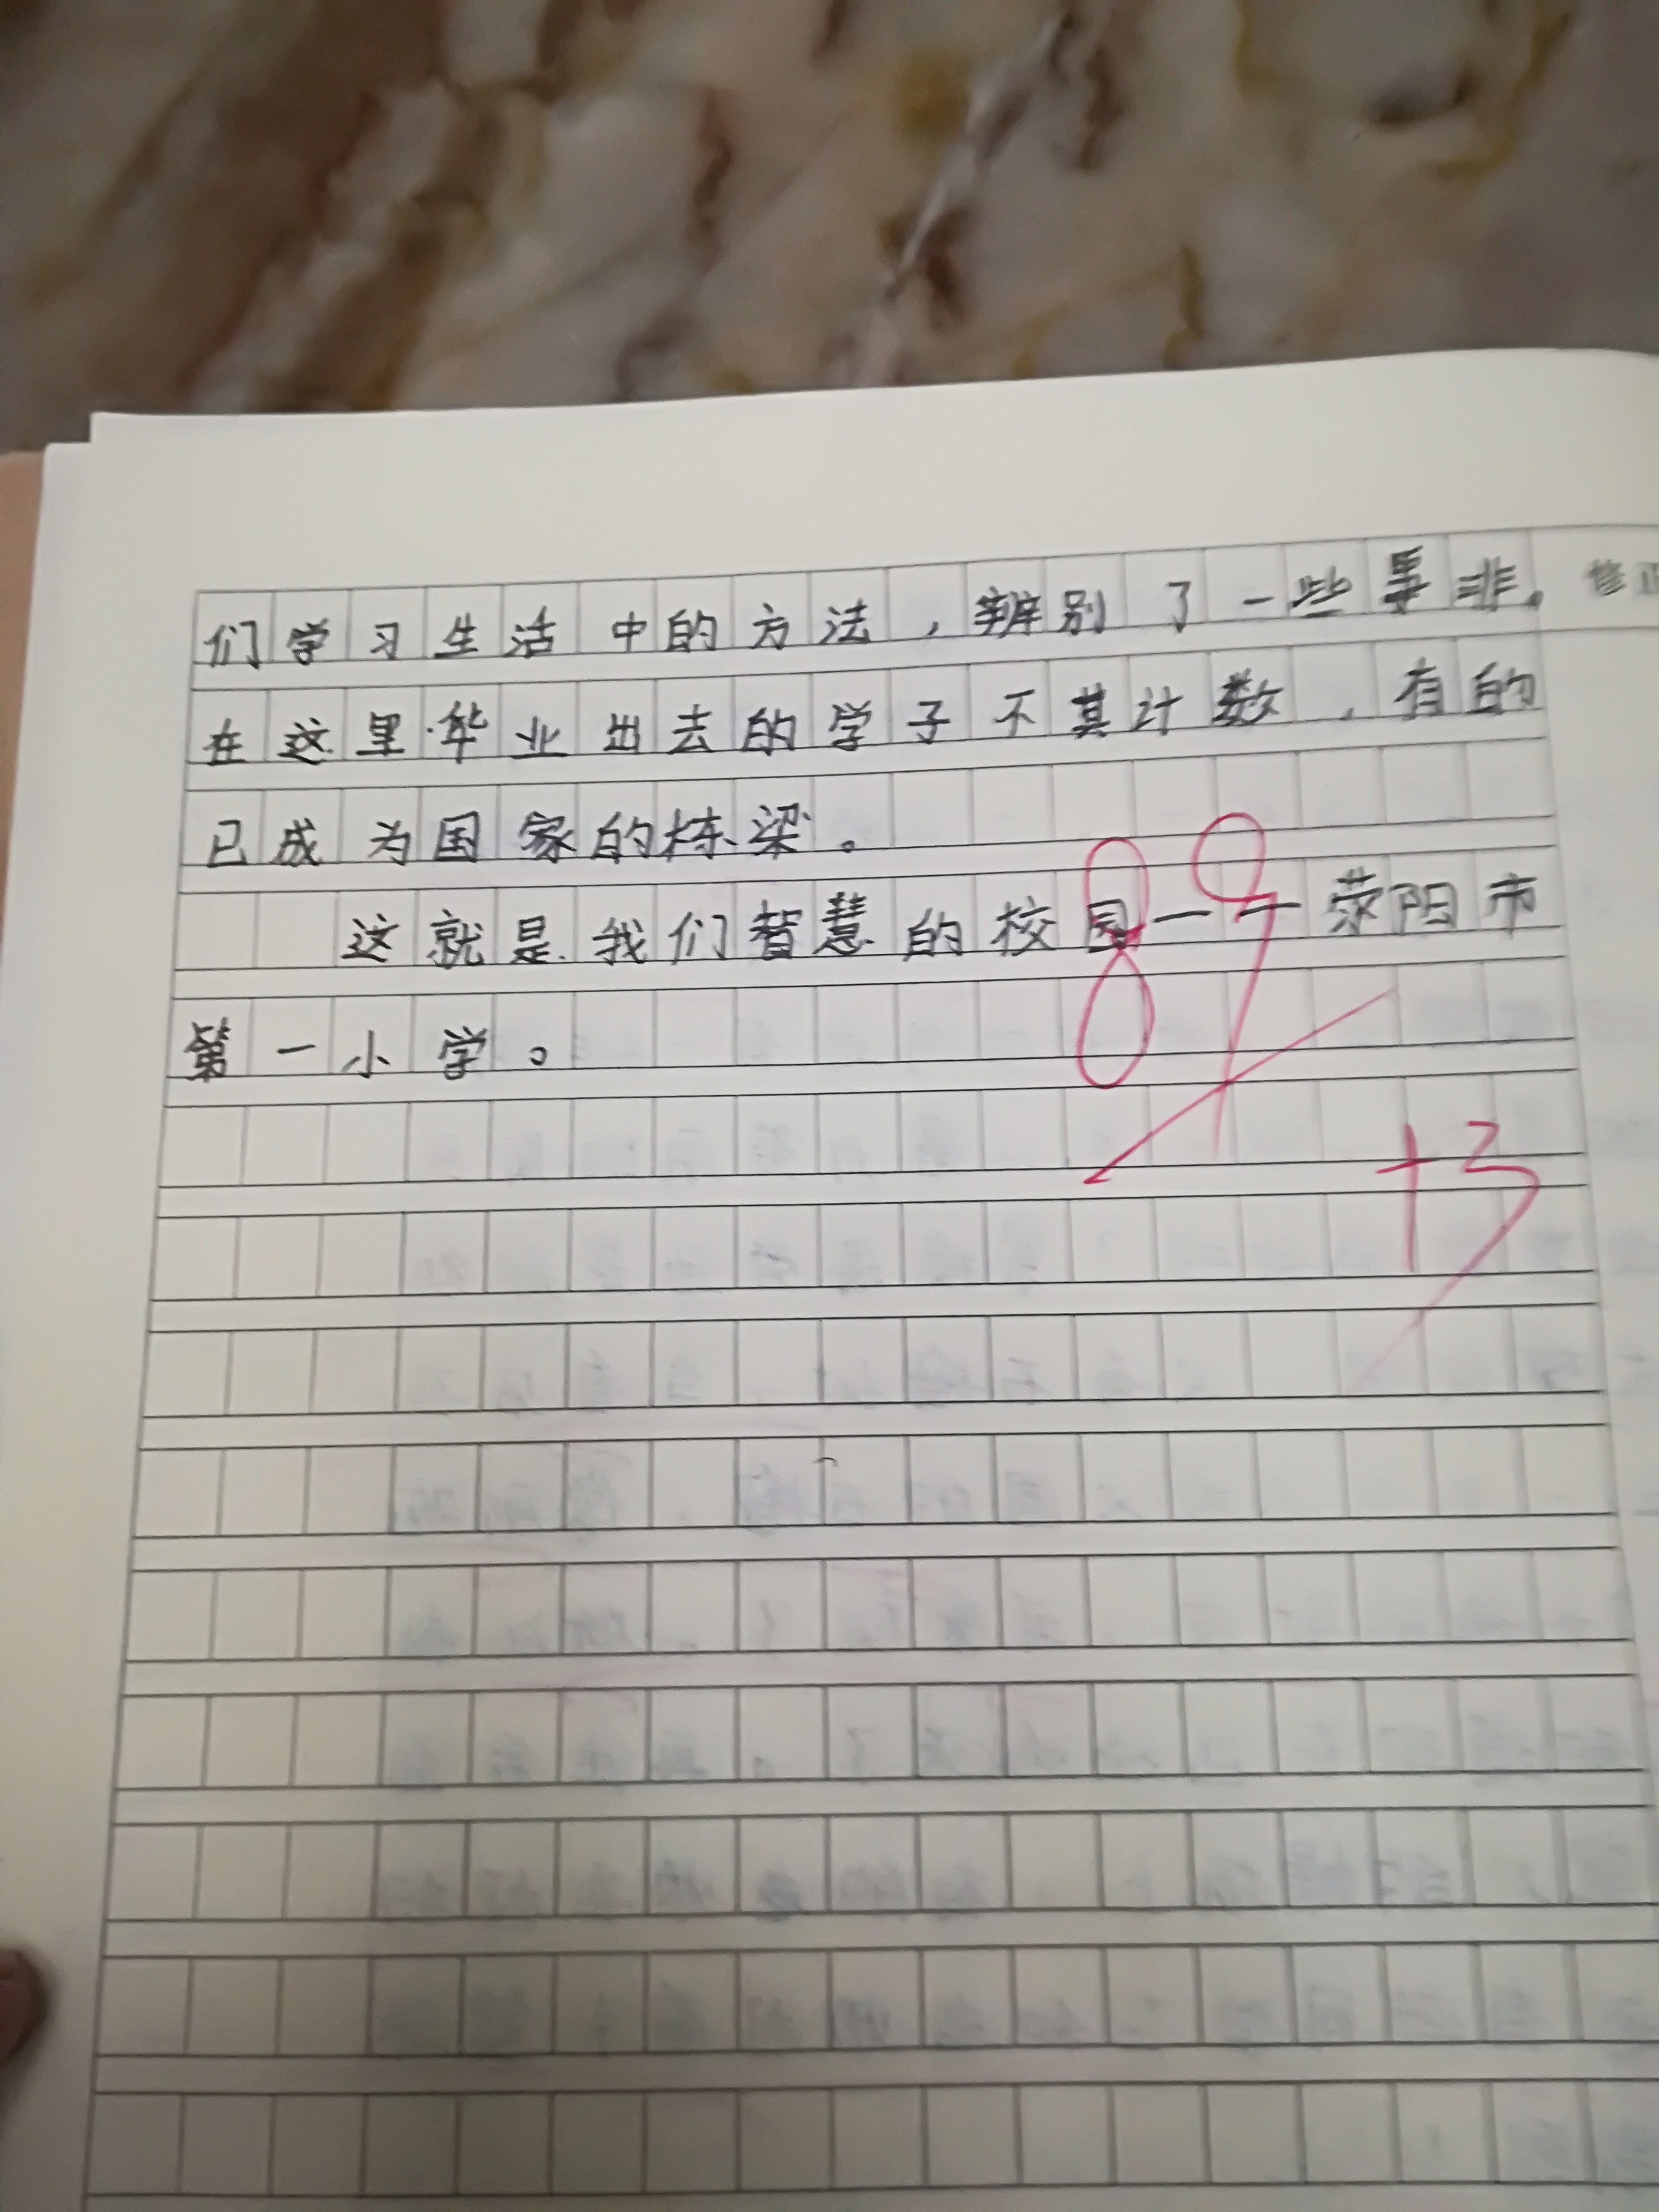 们学习生活中的方法，辨别了一些是非。 修正
在这里毕业出去的学子不其计数，有的
已成为国家的栋梁。
这就是我们智慧的校园——荥阳市
第一小学。
89
+3